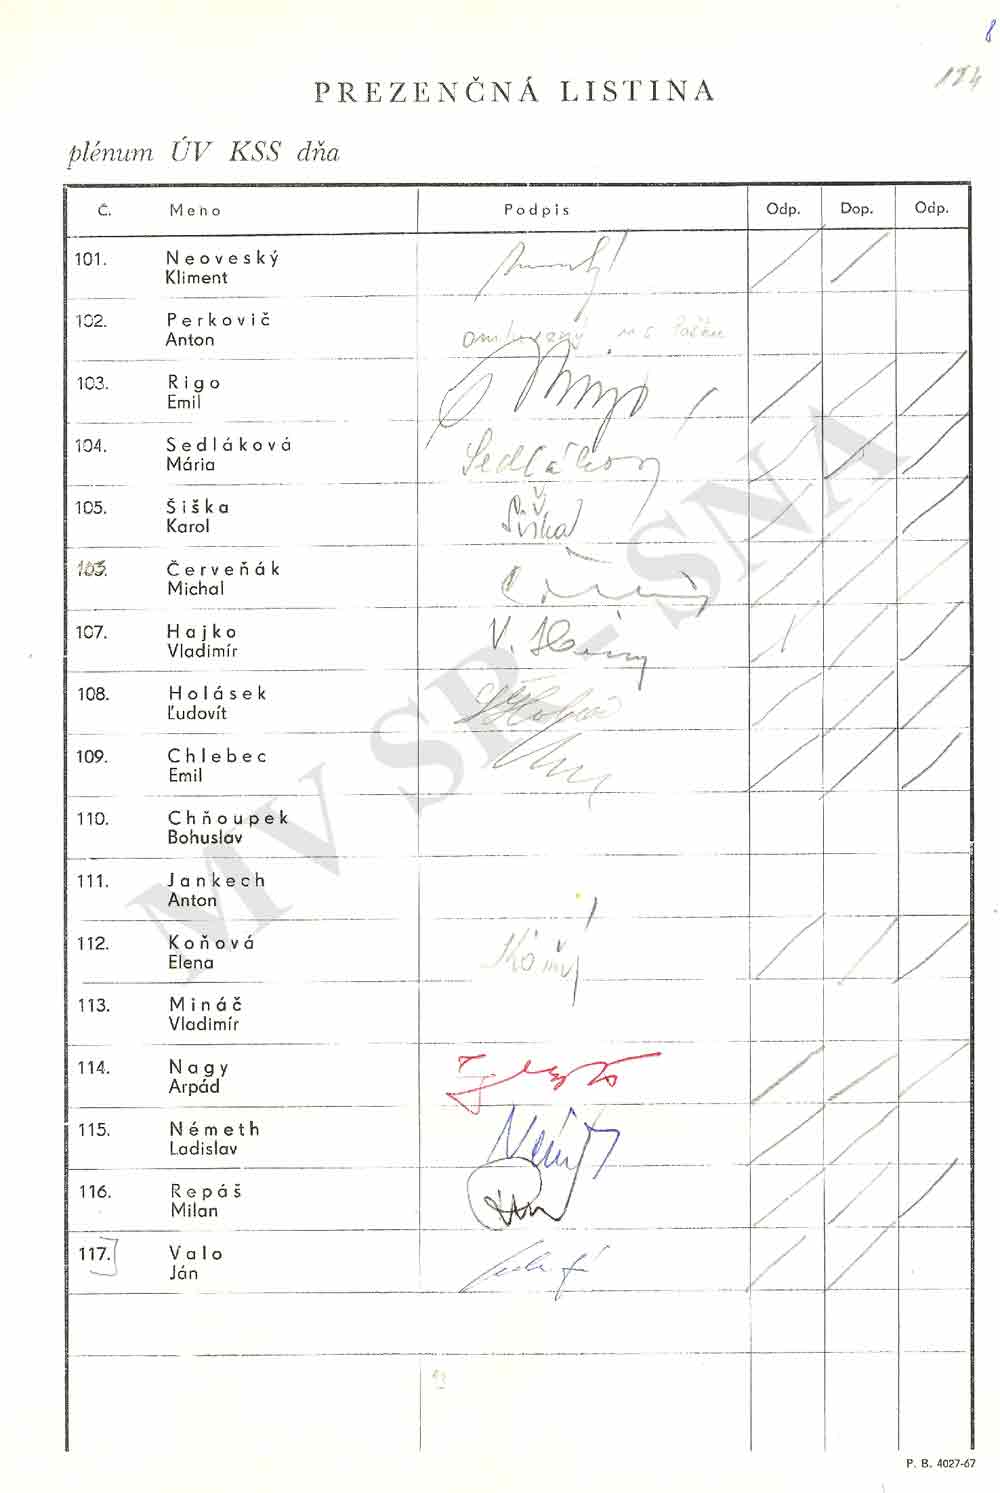 8
124
PREZENČNÁ LISTINA
plénum ÚV KSS dňa
Č. Meno Podpis Odp. Dop. Odp.
101. Neoveský
Kliment
102. Perkovič
Anton
103. Rigo
Emil
104. Sedláková
Mária
Sedláková
105. Šiška
Karol
Šiška
Červeňák
Michal
107. Hajko
Vladimír
108. Holásek
Ľudovít
109. Chlebec
Emil
110. Chňoupek
Bohuslav
111. Jankech
Anton
112. Koňová
Elena
113. Mináč
Vladimír
114. Nagy
Arpád
115. Németh
Ladislav
116. Repáš
Milan
117. Valo
Ján
MV SR - SNA
P. B. 4027-67